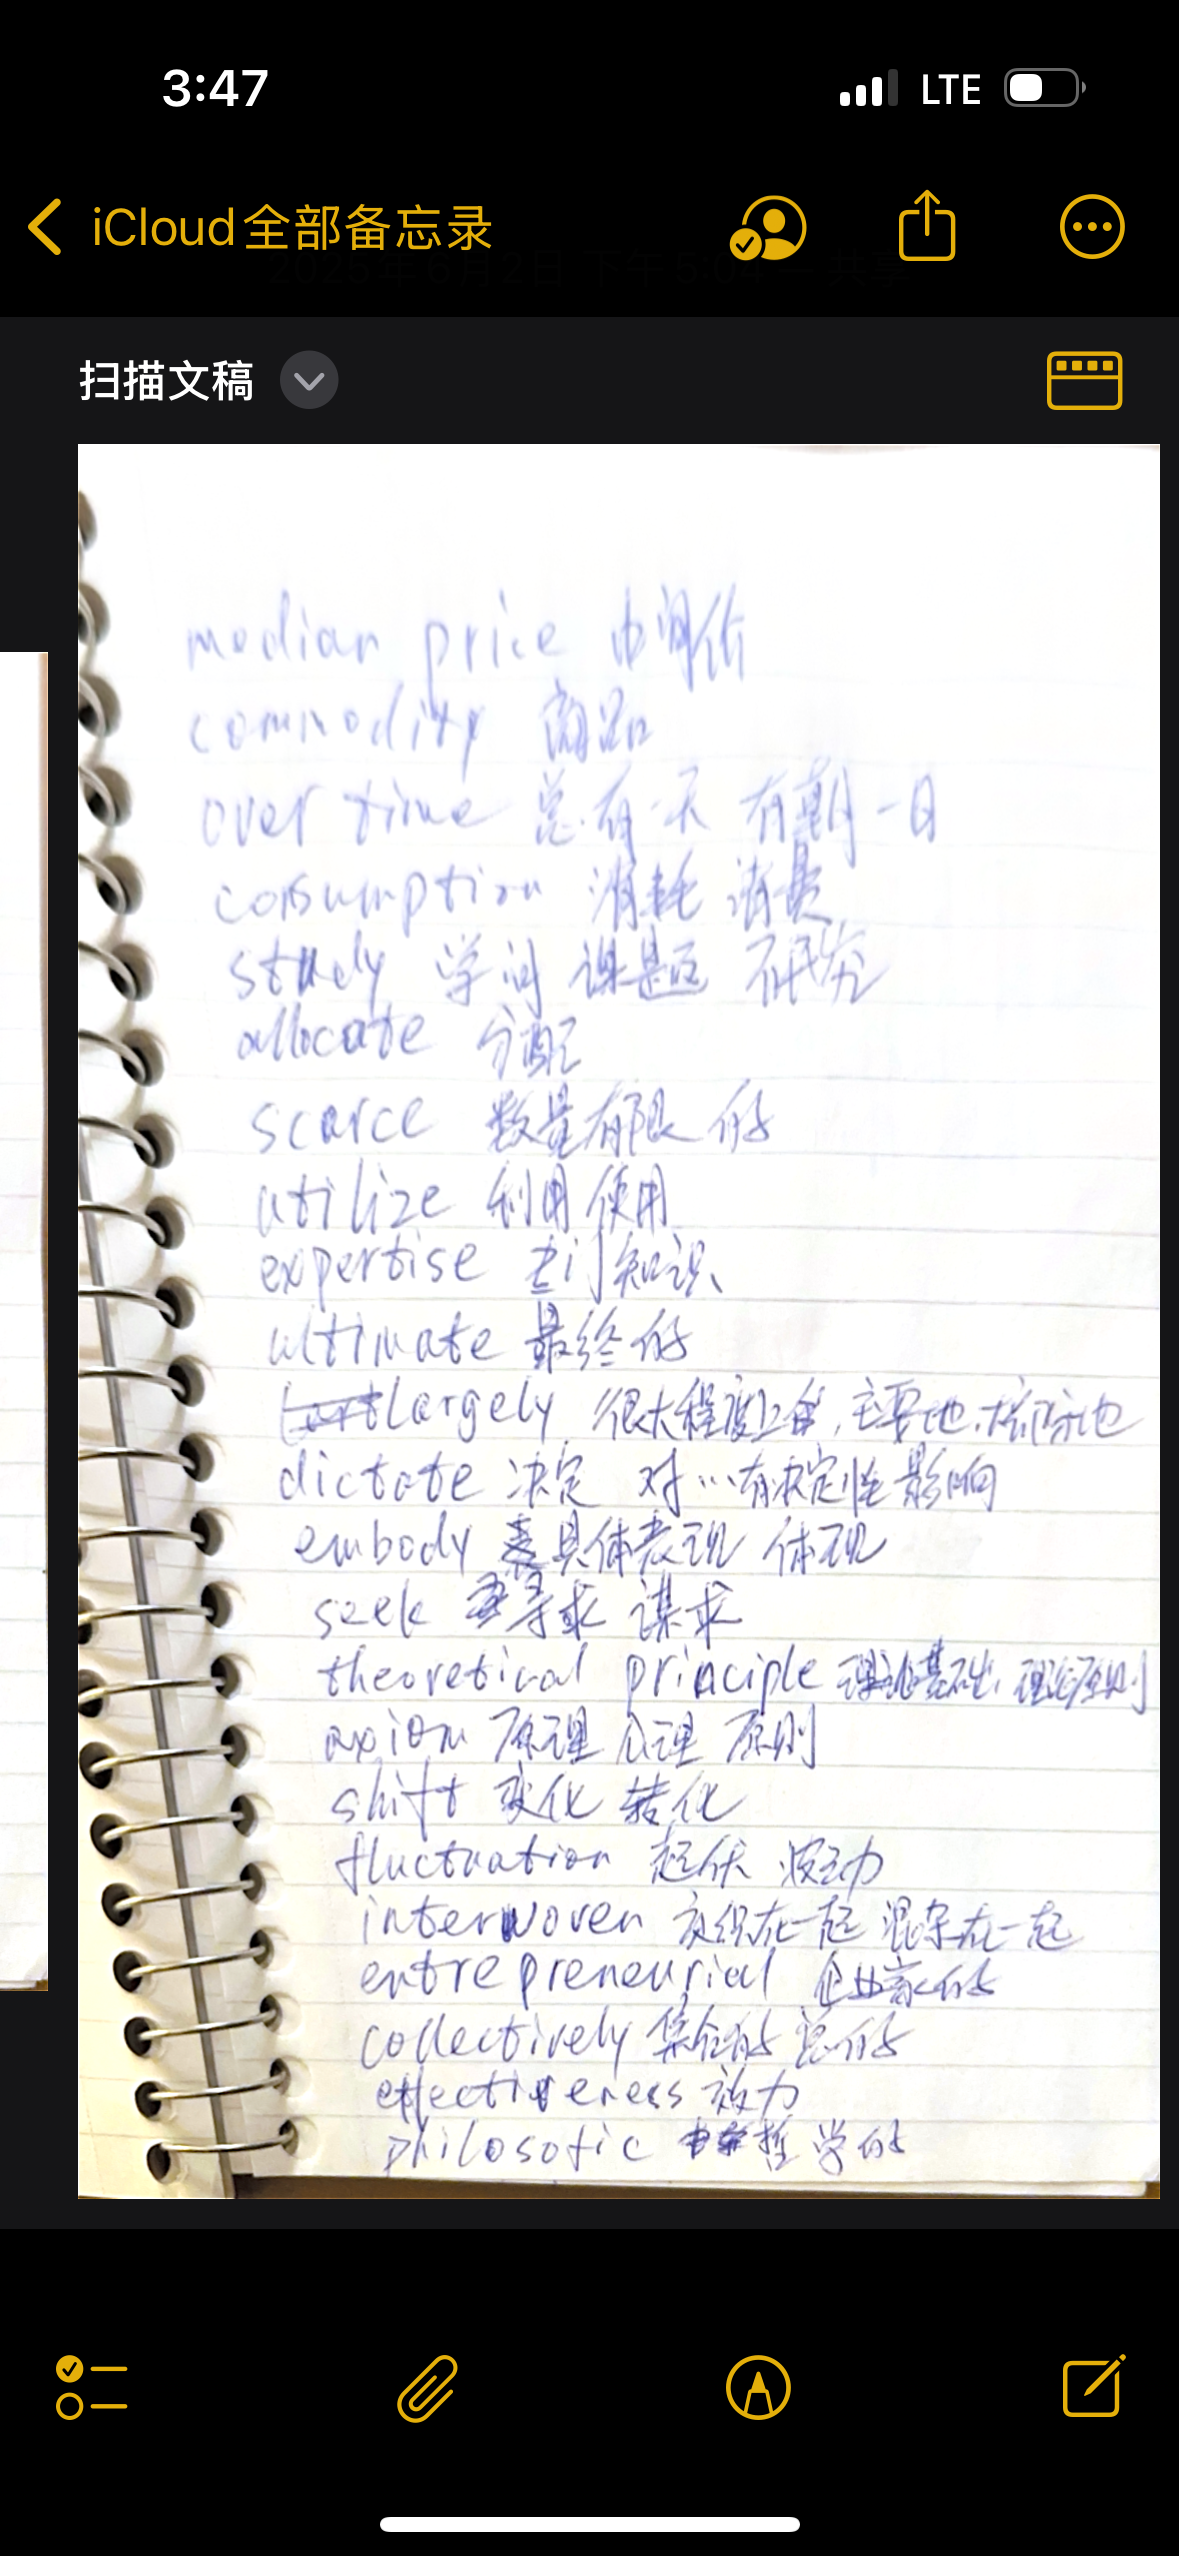 3:47 LTE
iCloud全部备忘录
扫描文稿
median price 中间价
commodity 商品
over time 总有一天 有朝一日
consumption 消耗 消费
study 学问 课题 研究
allocate 分配
scarce 数量有限的
utilize 利用 使用
expertise 专门知识
ultimate 最终的
largely 很大程度上, 主要地,
dictate 决定 对…有决定性影响
embody 具体表现 体现
seek 寻求 谋求
theoretical principle 理论基础, 理论原则
axiom 原理 公理 原则
shift 变化 转化
fluctuation 起伏 波动
interwoven 交织在一起 混杂在一起
entrepreneurial 企业家的
collectively 集合的 总的
effectiveness 效力
philosofic 哲学的